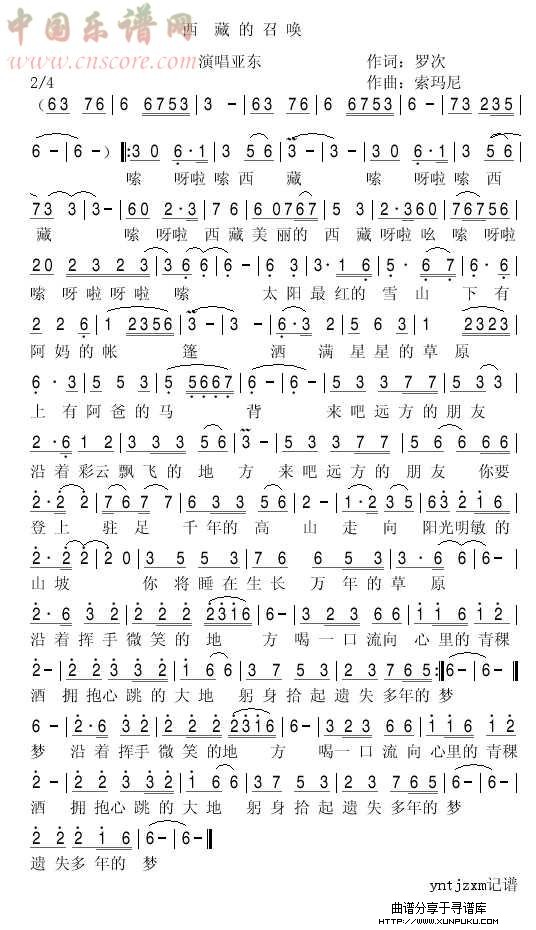 中国乐谱网
www.cnscore.com
西 藏 的 召 唤
演唱亚东 作词：罗次
2/4 作曲：索玛尼
（63 76 | 6 6753 | 3 - | 63 76 | 6 6753 | 6 - | 3 - | 73 235 |
6 - | 6 - ）‖: 30 6·1 | 3 56 | 3 - | 3 - | 30 6·1 | 3 56 |
嗦 呀啦 嗦西 藏 嗦 呀啦 嗦 西
73 3 | 3 - | 60 2·3 | 76 | 6 0767 | 5 3 | 2·360 | 76756 |
藏 嗦 呀啦 西藏美丽的 西 藏呀啦吆 嗦 呀啦
20 2 3 2 3 | 3 6 6 | 6 - | 6 3 | 3·1 6 | 5·6 7 | 6·6 |
嗦 呀 啦 呀 啦 嗦 太 阳 最 红 的 雪 山 下 有
2 2 6 | 1 2356 | 3 - | 3 - | 6·3 | 2 5 6 | 1 2323 |
阿 妈 的 帐 篷 洒 满 星 星 的 草 原
6·3 | 5 5 3 | 5 5667 | 6 - | 6 - | 5 3 3 7 7 | 6 5 3 |
上 有 阿 爸 的 马 背 来 吧 远 方 的 朋 友
2·6 1 2 | 3 3 3 5 6 | 3 - | 5 3 3 7 7 | 6 5 3 | 5 3 |
沿 着 彩 云 飘 飞 的 地 方 来 吧 远 方 的 朋 友 你要
2·2 2 | 7 6 7 7 | 7 5 6 6 | 2 - | 1·2 3 5 | 6 3 2 1 6 |
登 上 驻 足 千 年 的 高 山 走 向 阳光明敏 的
2·2 2 | 2 0 | 3 5 | 5 3 5 | 7 6 | 5 5 3 | 3·6 | 6 - |
山 坡 你 将 睡 在 生 长 万 年 的 草 原
2·6 3 2 | 2 2 2 2316 | 6 - | 3 2 3 6 6 | 1 1 6 1 2 |
沿 着 挥 手 微 笑 的 地 方 喝 一 口 流向 心 里 的 青稞
2 - | 2 2 3 3 2 | 1 6 6 | 3 7 5 3 | 2 3 7 6 5 :‖ 6 - | 6 - |
酒 拥 抱心 跳 的 大 地 躬 身 拾 起 遗 失 多年的 梦
6 - | 2·6 3 2 | 2 2 2 2316 | 6 - | 3 2 3 6 6 | 1 1 6 1 2 |
梦 沿 着 挥手 微 笑 的地 方 喝一 口 流 向 心里的 青稞
2 - | 2 2 3 3 2 | 1 6 6 | 3 7 5 3 | 2 3 7 6 5 | 6 - | 6 - |
酒 拥 抱心 跳 的 大 地 躬 身 拾 起 遗 失 多年的 梦
2 2 | 2 1 6 | 6 - | 6 - ‖
遗 失多 年的 梦
yntjzxm记谱
曲谱分享于寻谱库
WWW.XUNPUKU.COM